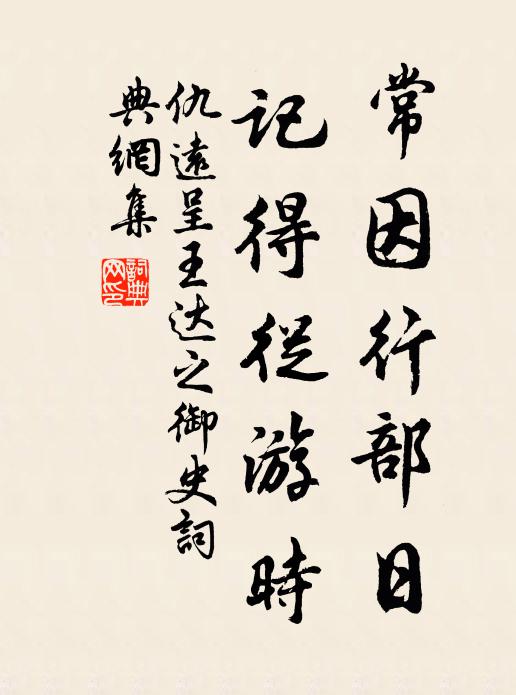 常因行部日
記得從游時
仇遠呈王达之御史詞
典網集
詞典
网印